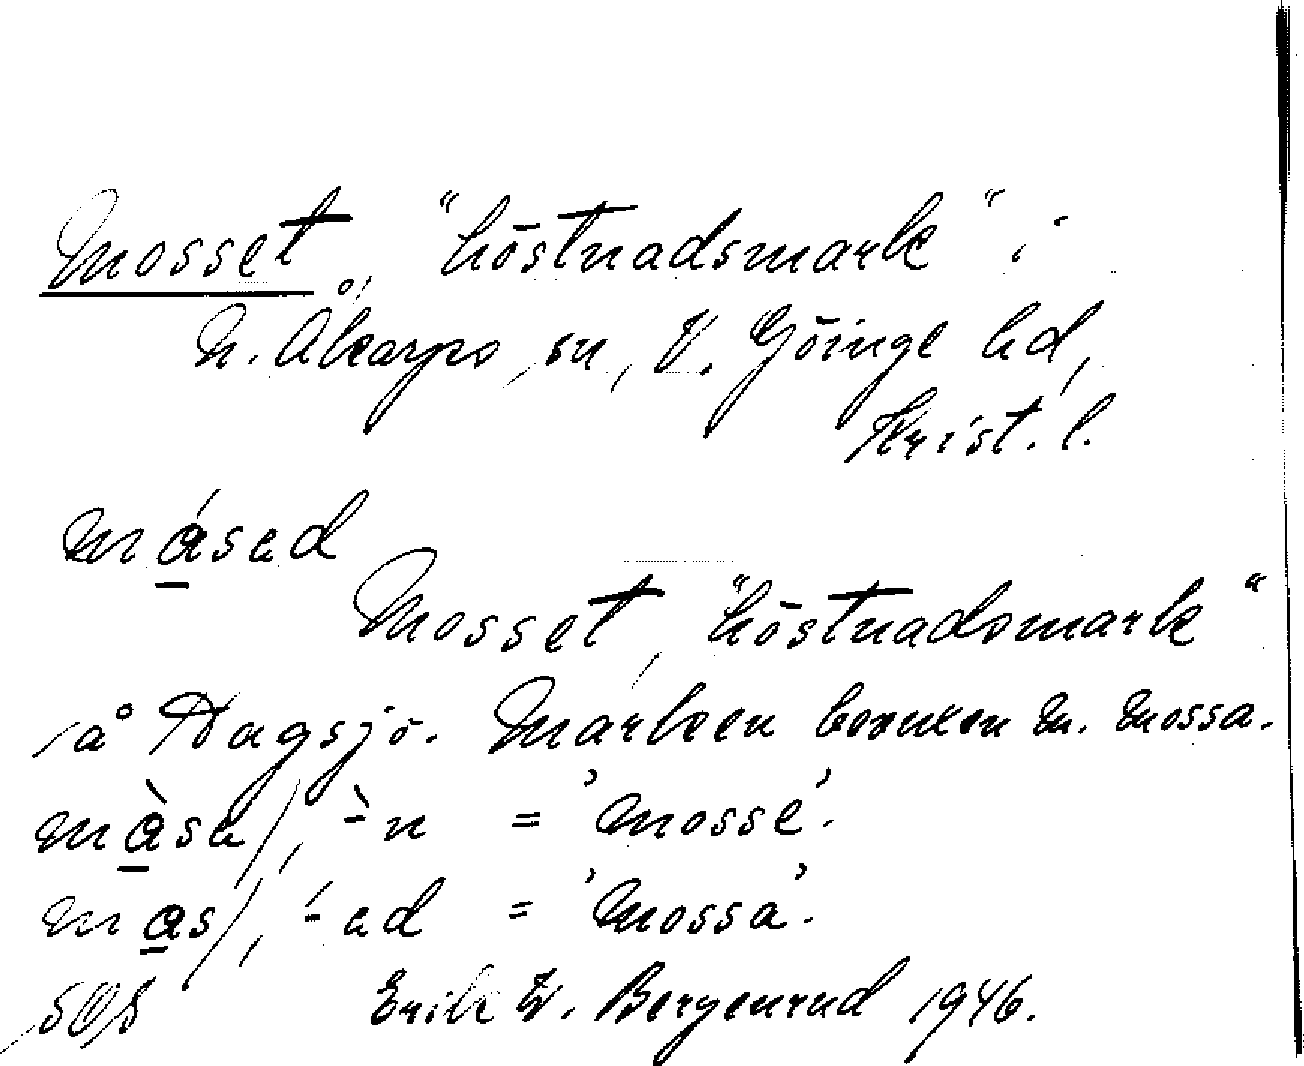 Mosset, "höstnadsmark" i
N. Åkarps sn, V. Göinge hd,
Krist. l.
másed
Mosset, "höstnadsmark"
på Hagsjö. Marken bevuxen m. mossa.
màsa/, -̀n = 'mosse'.
mas/, -́ed = 'mossa'.
Erik W. Bergenrud 1946.